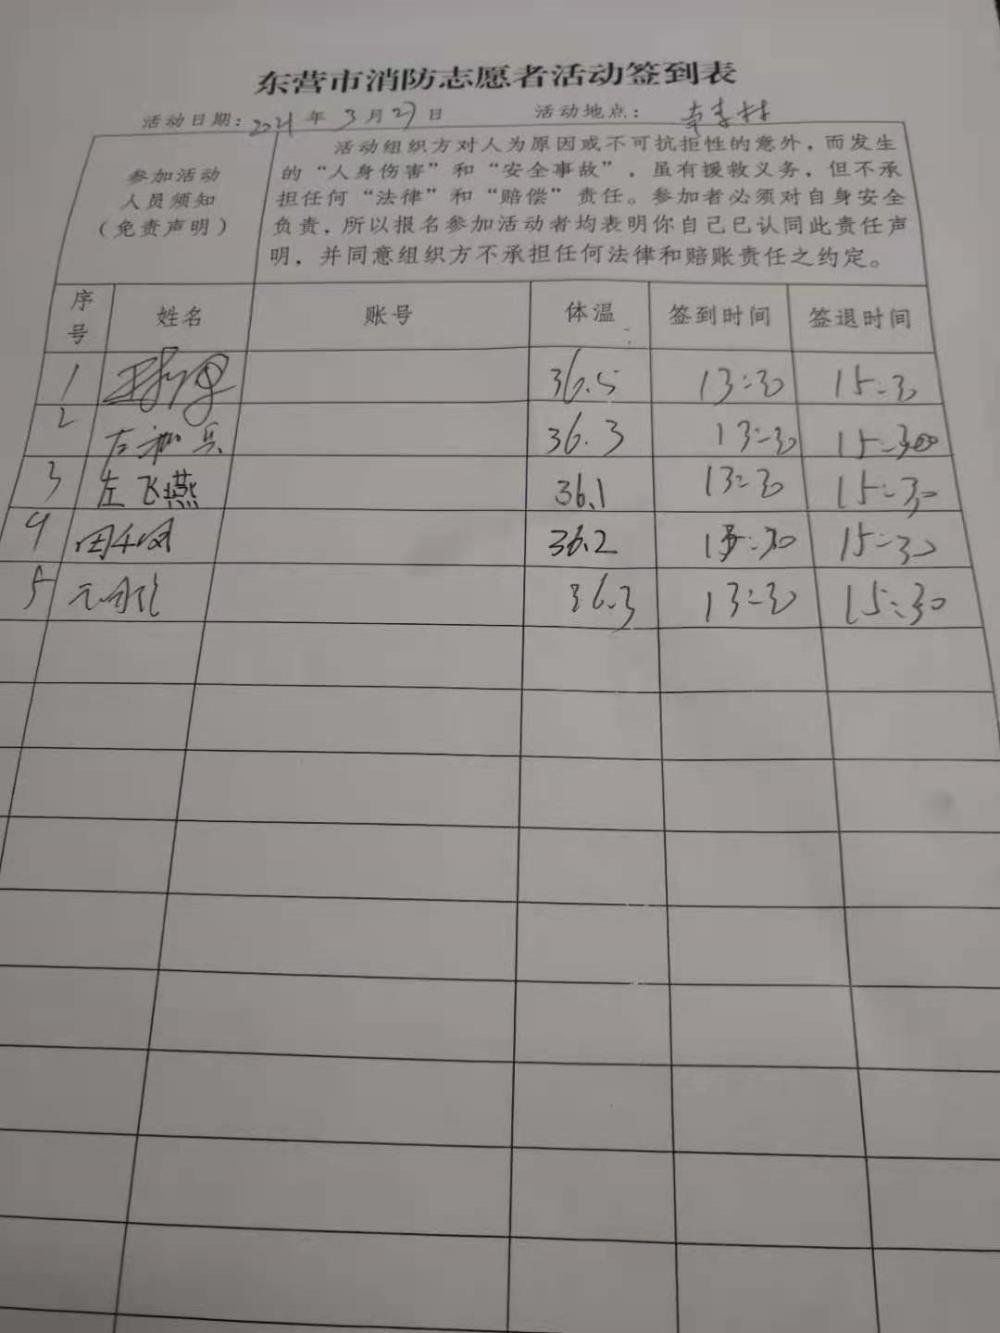 东营市消防志愿者活动签到表
活动日期：2021年3月27日 活动地点：李村
参加活动
人员须知
（免责声明）
活动组织方对人为原因或不可抗拒性的意外，而发生
的“人身伤害”和“安全事故”，虽有援救义务，但不承
担任何“法律”和“赔偿”责任。参加者必须对自身安全
负责，所以报名参加活动者均表明你自己已认同此责任声
明，并同意组织方不承担任何法律和赔账责任之约定。
序号 姓名 账号 体温 签到时间 签退时间
1 36.5 13:30 15:30
2 36.3 13:30 15:30
3 左飞燕 36.1 13:30 15:30
4 36.2 13:30 15:30
5 36.3 13:30 15:30